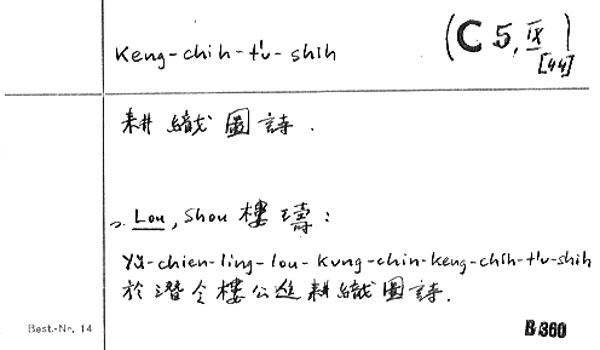 Keng-chih-t'u-shih
(C 5, IX)
[44]
耕織圖詩.
Lou, Shou 樓璹:
Yü-chien-ling-lou-kung-chin-keng-chih-t'u-shih
於潛令樓公進耕織圖詩.
Best.-Nr. 14
B 360